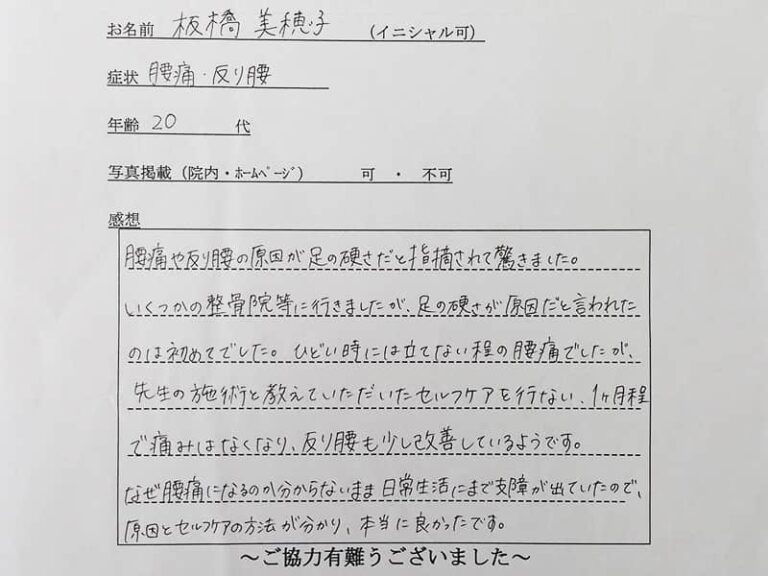 お名前 板橋 美穂子 (イニシャル可)
症状 腰痛・反り腰
年齢 20 代
写真掲載(院内・ホームページ) 可 ・ 不可
感想
腰痛や反り腰の原因が足の硬さだと指摘されて驚きました。
いくつかの整骨院等に行きましたが、足の硬さが原因だと言われた
のは初めてでした。ひどい時には立てない程の腰痛でしたが、
先生の施術と教えていただいたセルフケアを行ない、1ヶ月程
で痛みはなくなり、反り腰も少し改善しているようです。
なぜ腰痛になるのか分からないまま日常生活にまで支障が出ていたので、
原因とセルフケアの方法が分かり、本当に良かったです。
~ご協力有難うございました~